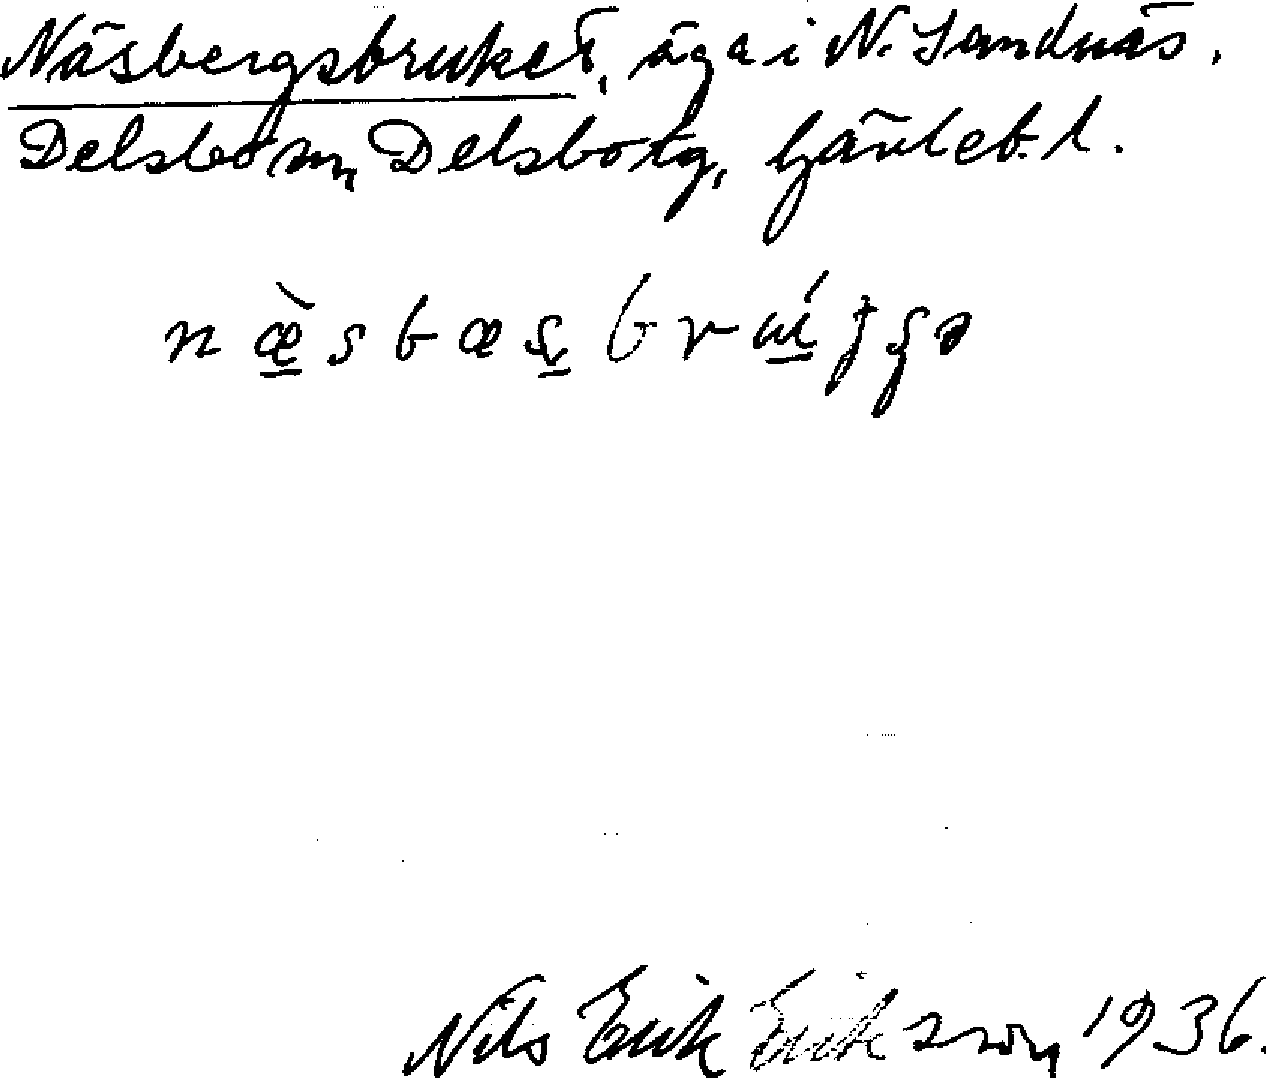 Näsbergsbruket, äga i N. Sandnäs,
Delsbo sn, Delsbo tg, Gävleb. l.
Nils Erik Eriksson 1936.